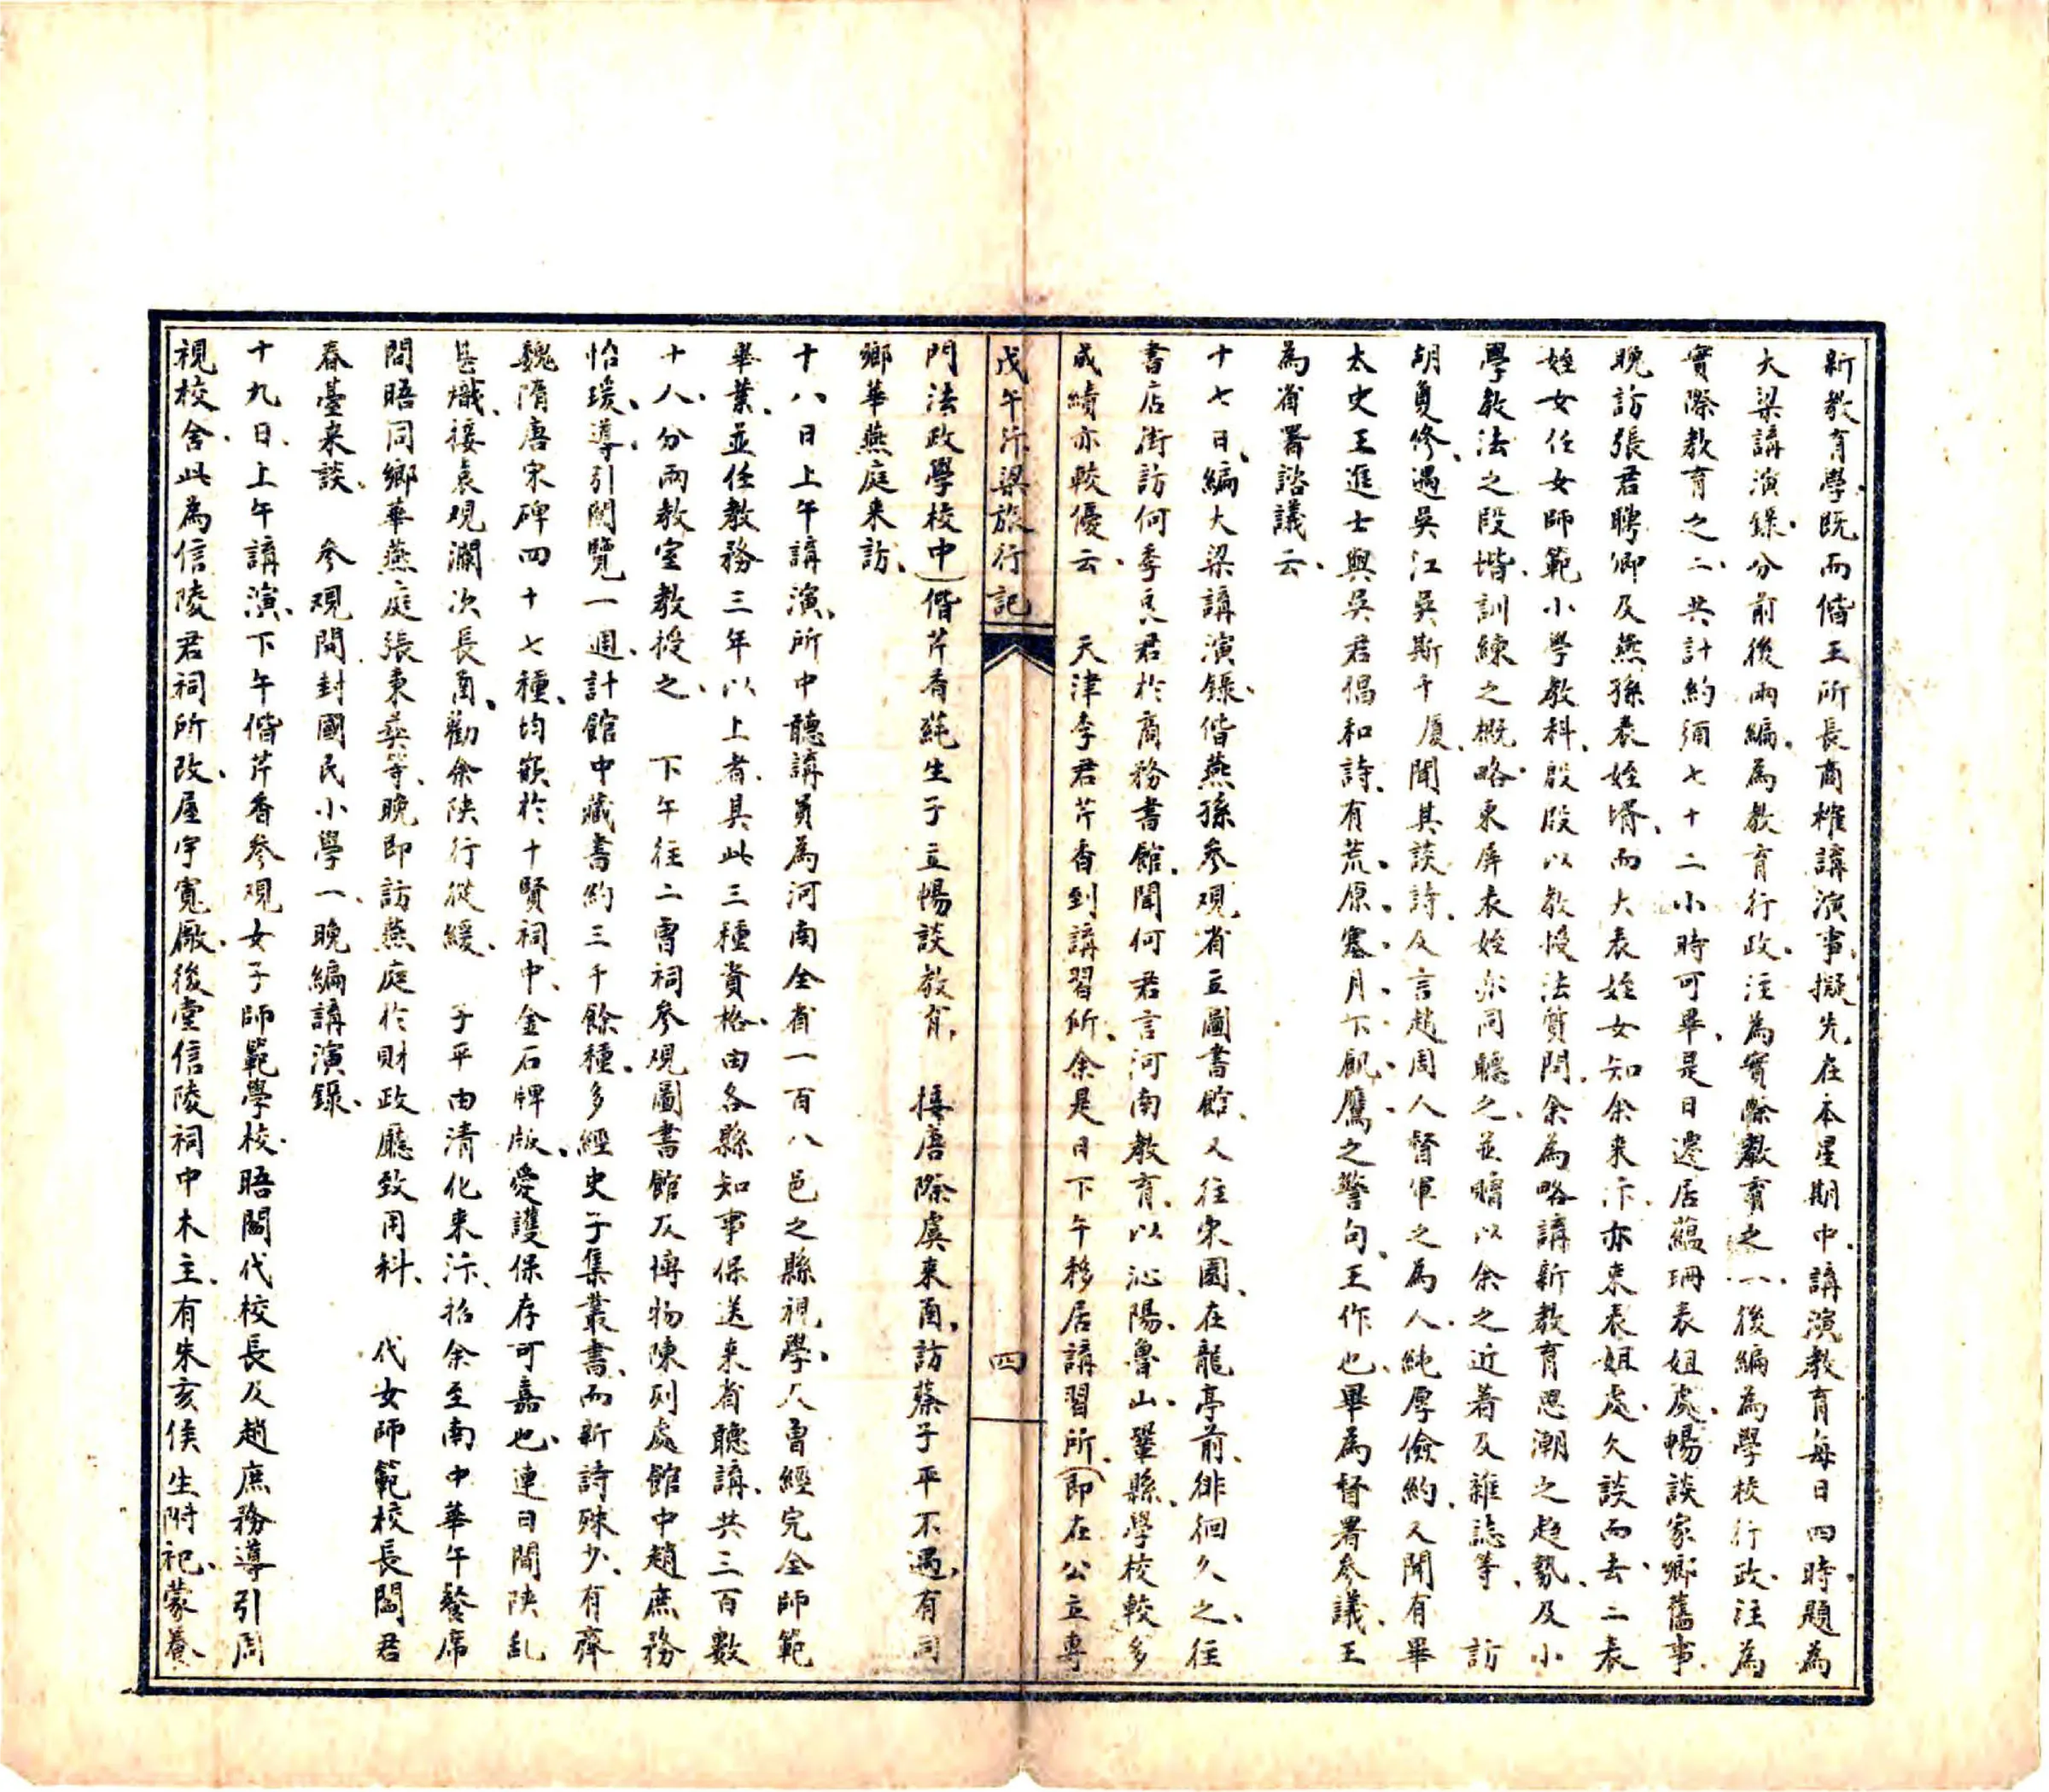 新教育學、既而偕王所長商榷講演事、擬先在本星期中、講演教育每日四時、題為
大梁講演錄、分前後兩編、為教育行政、注為實際教育之一、後編為學校行政、注為
實際教育之二、共計約須七十二小時可畢、是日遷居蘊珊表姐處、暢談家鄉舊事、
晚訪張君聘卿及燕孫表姪壻、而大表姪女知余來汴、亦來表姐處、久談而去、二表
姪女任女師範小學教科、殷殷以教授法質問、余為略講新教育思潮之趨勢、及小
學教法之段堦、訓練之概略、東屏表姪亦同聽之、並贈以余之近著及雜誌等、 訪
胡夐修、遇吳江吳斯千廈、聞其談詩、及言趙周人督軍之為人、純厚儉約、又聞有畢
太史王進士與吳君倡和詩、有荒原塞月下飢鷹之警句、王作也、畢為督署參議、王
為省署諮議云、
十七日、編大梁講演錄、偕燕孫參觀省立圖書館、又往宋園、在龍亭前、徘徊久之、往
書店街訪何季良君於商務書館、聞何君言河南教育、以沁陽、魯山、鞏縣、學校較多
成績亦較優云、 天津李君芹香到講習所、余是日下午移居講習所、(即在公立專
戊午汴梁旅行記 四
門法政學校中)偕芹香蒓生子立暢談教育、 接唐際虞來函、訪蔡子平不遇、有同
鄉華燕庭來訪、
十八日上午講演、所中聽講員為河南全省一百八邑之縣視學、及曾經完全師範
畢業、並任教務三年以上者、具此三種資格、由各縣知事保送來省聽講、共三百數
十人、分兩教室教授之、 下午往二曾祠參觀圖書館及博物陳列處館中趙庶務
怡瑗、導引閱覽一週、計館中藏書約三千餘種、多經史子集叢書、而新詩殊少、有齊
魏隋唐宋碑四十七種、均嵌於十賢祠中、金石牌版、愛護保存可嘉也、連日聞陝亂
甚熾、接袁觀瀾次長函、勸余陝行從緩、 子平由清化來汴、招余至南中華午餐席
間晤同鄉華燕庭張東英等、晚即訪燕庭於財政廳致用科、 代女師範校長閻君
春臺來談、 參觀開封國民小學一、晚編講演錄、
十九日、上午講演、下午偕芹香參觀女子師範學校、晤閻代校長及趙庶務導引周
視校舍、此為信陵君祠所改、屋宇寬厰、後堂信陵祠中木主、有朱亥侯生附祀、蒙養